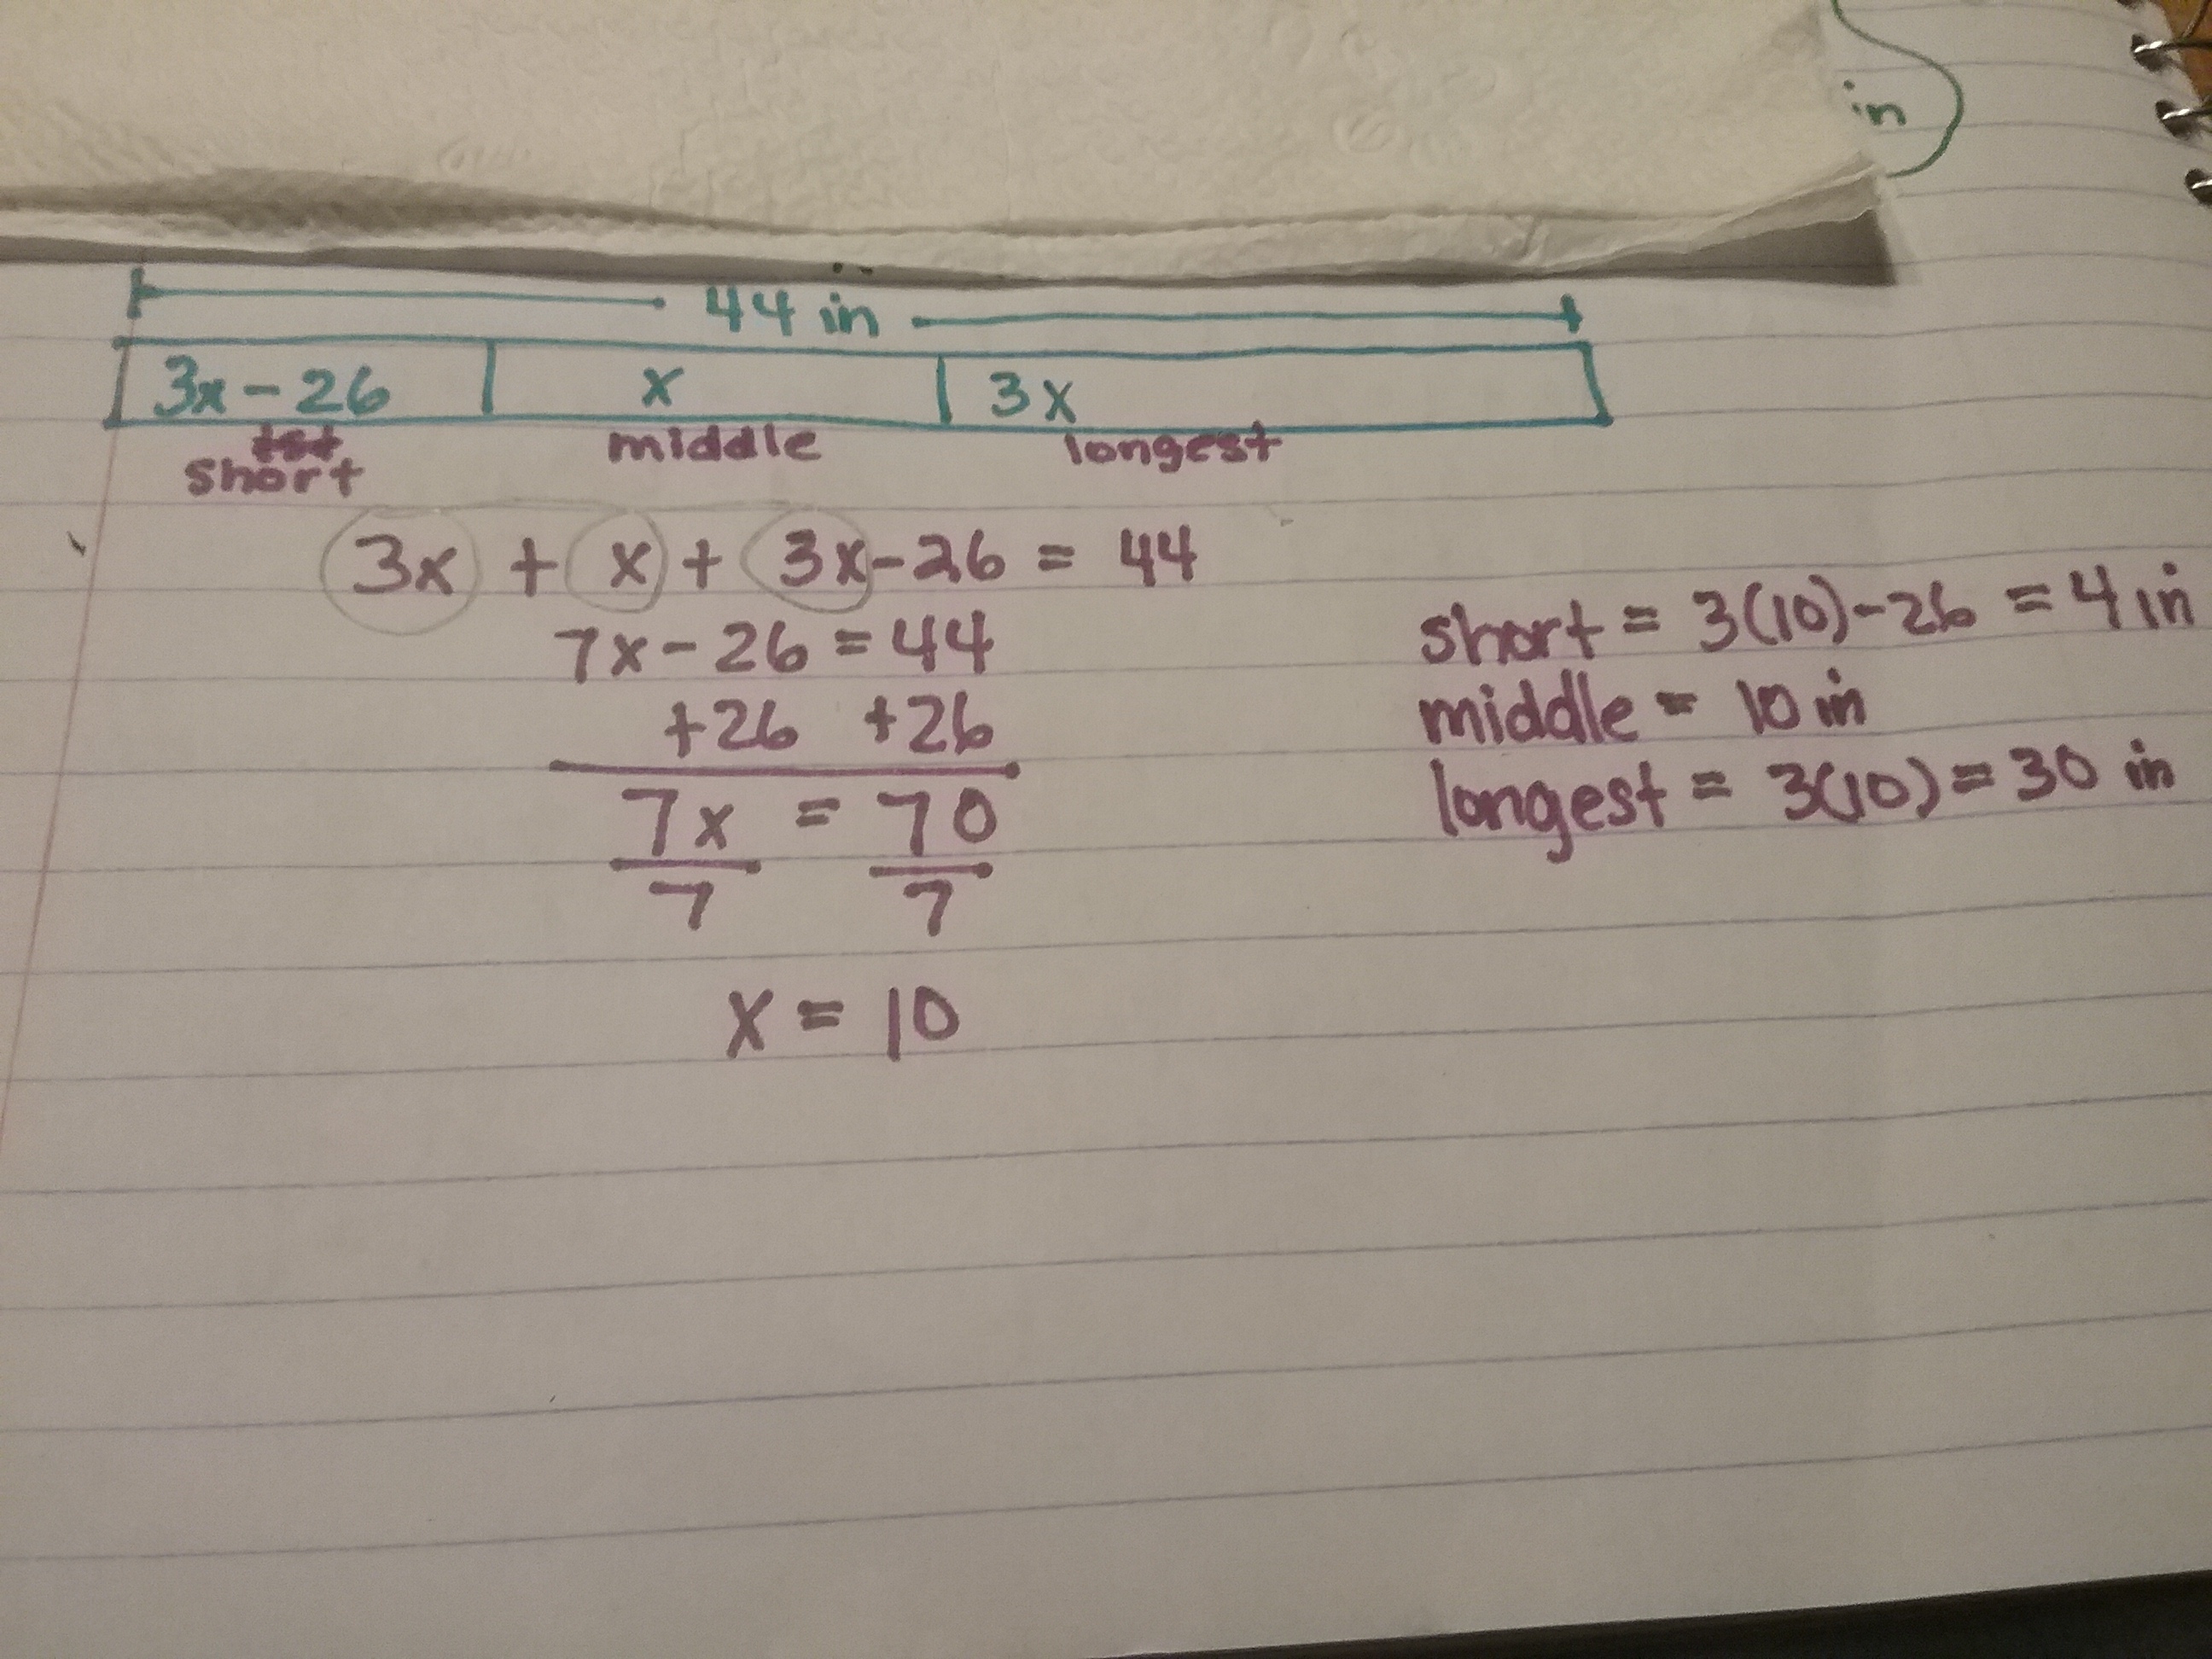 in
44 in
3x - 26 x 3x
tst middle longest
short
3x + x + 3x - 26 = 44
7x - 26 = 44
+26 +26
7x = 70
7 7
x = 10
short = 3(10) - 26 = 4 in
middle = 10 in
longest = 3(10) = 30 in